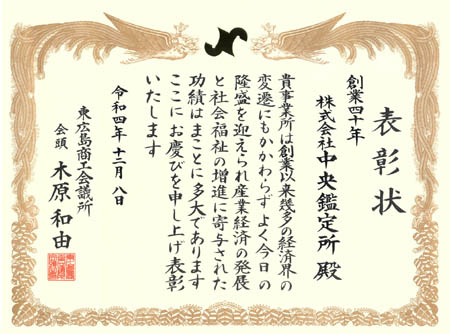 表彰状
創業四十年
株式会社中央鑑定所 殿
貴事業所は創業以来幾多の経済界の
変遷にもかかわらず よく今日の
隆盛を迎えられ産業経済の発展
と社会福祉の増進に寄与された
功績はまことに多大であります
ここに お慶びを申し上げ表彰
いたします
令和四年十二月八日
東広島商工会議所
会頭 木原和由